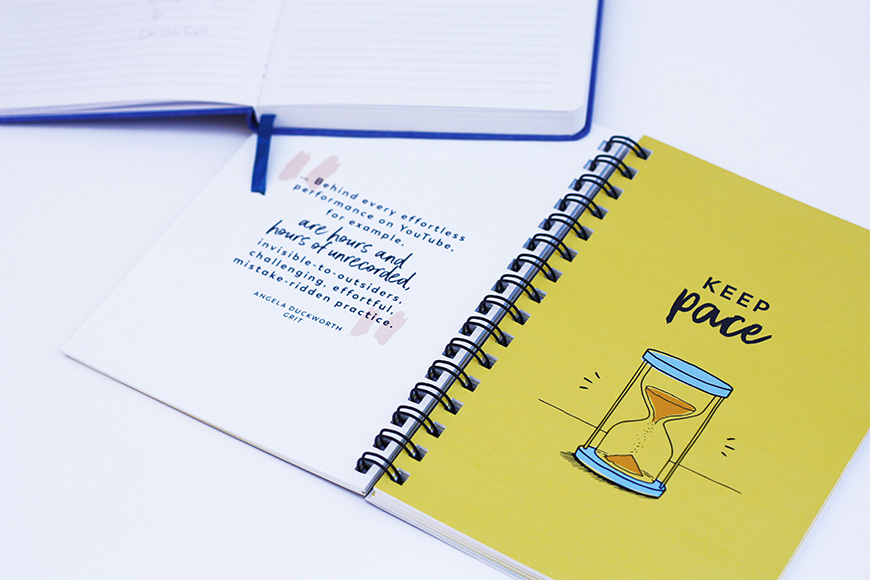 Behind every effortless
performance on YouTube,
for example,
are hours and
hours of unrecorded,
invisible-to-outsiders,
challenging, effortful,
mistake-ridden practice.
ANGELA DUCKWORTH
GRIT
KEEP
pace